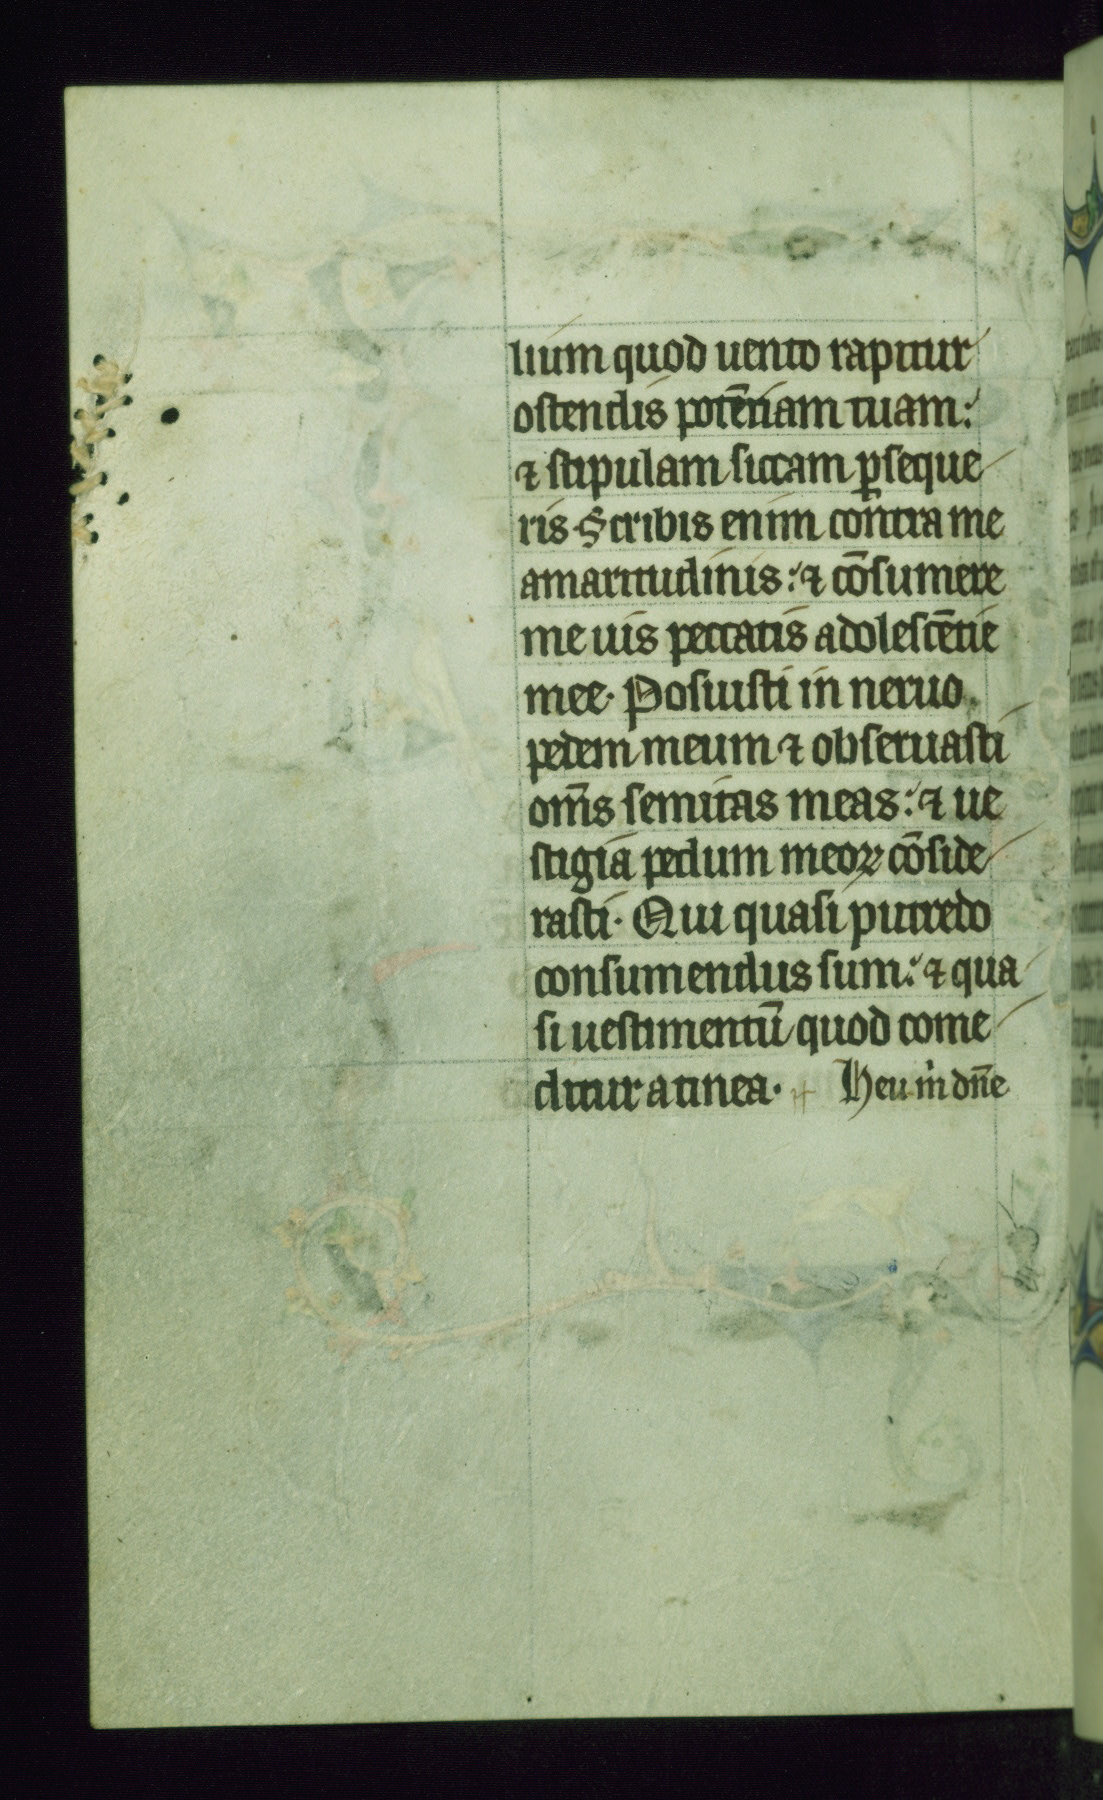 lium quod uento rapitur
ostendis potēn̄iam tuam:
⁊ stipulam siccam ꝑseque
ris. Scribis enim contra me
amaritudinis: ⁊ cōsumere
me uis peccatis adolescētie
mee. Posuisti in neruo
pedem meum ⁊ obseruasti
om̄s semitas meas: ⁊ ue
stigia pedum meoꝝ cōside
rasti. Qui quasi putredo
consumendus sum: ⁊ qua
si uestimentū quod come
ditur a tinea. Heu m̄ dn̄e